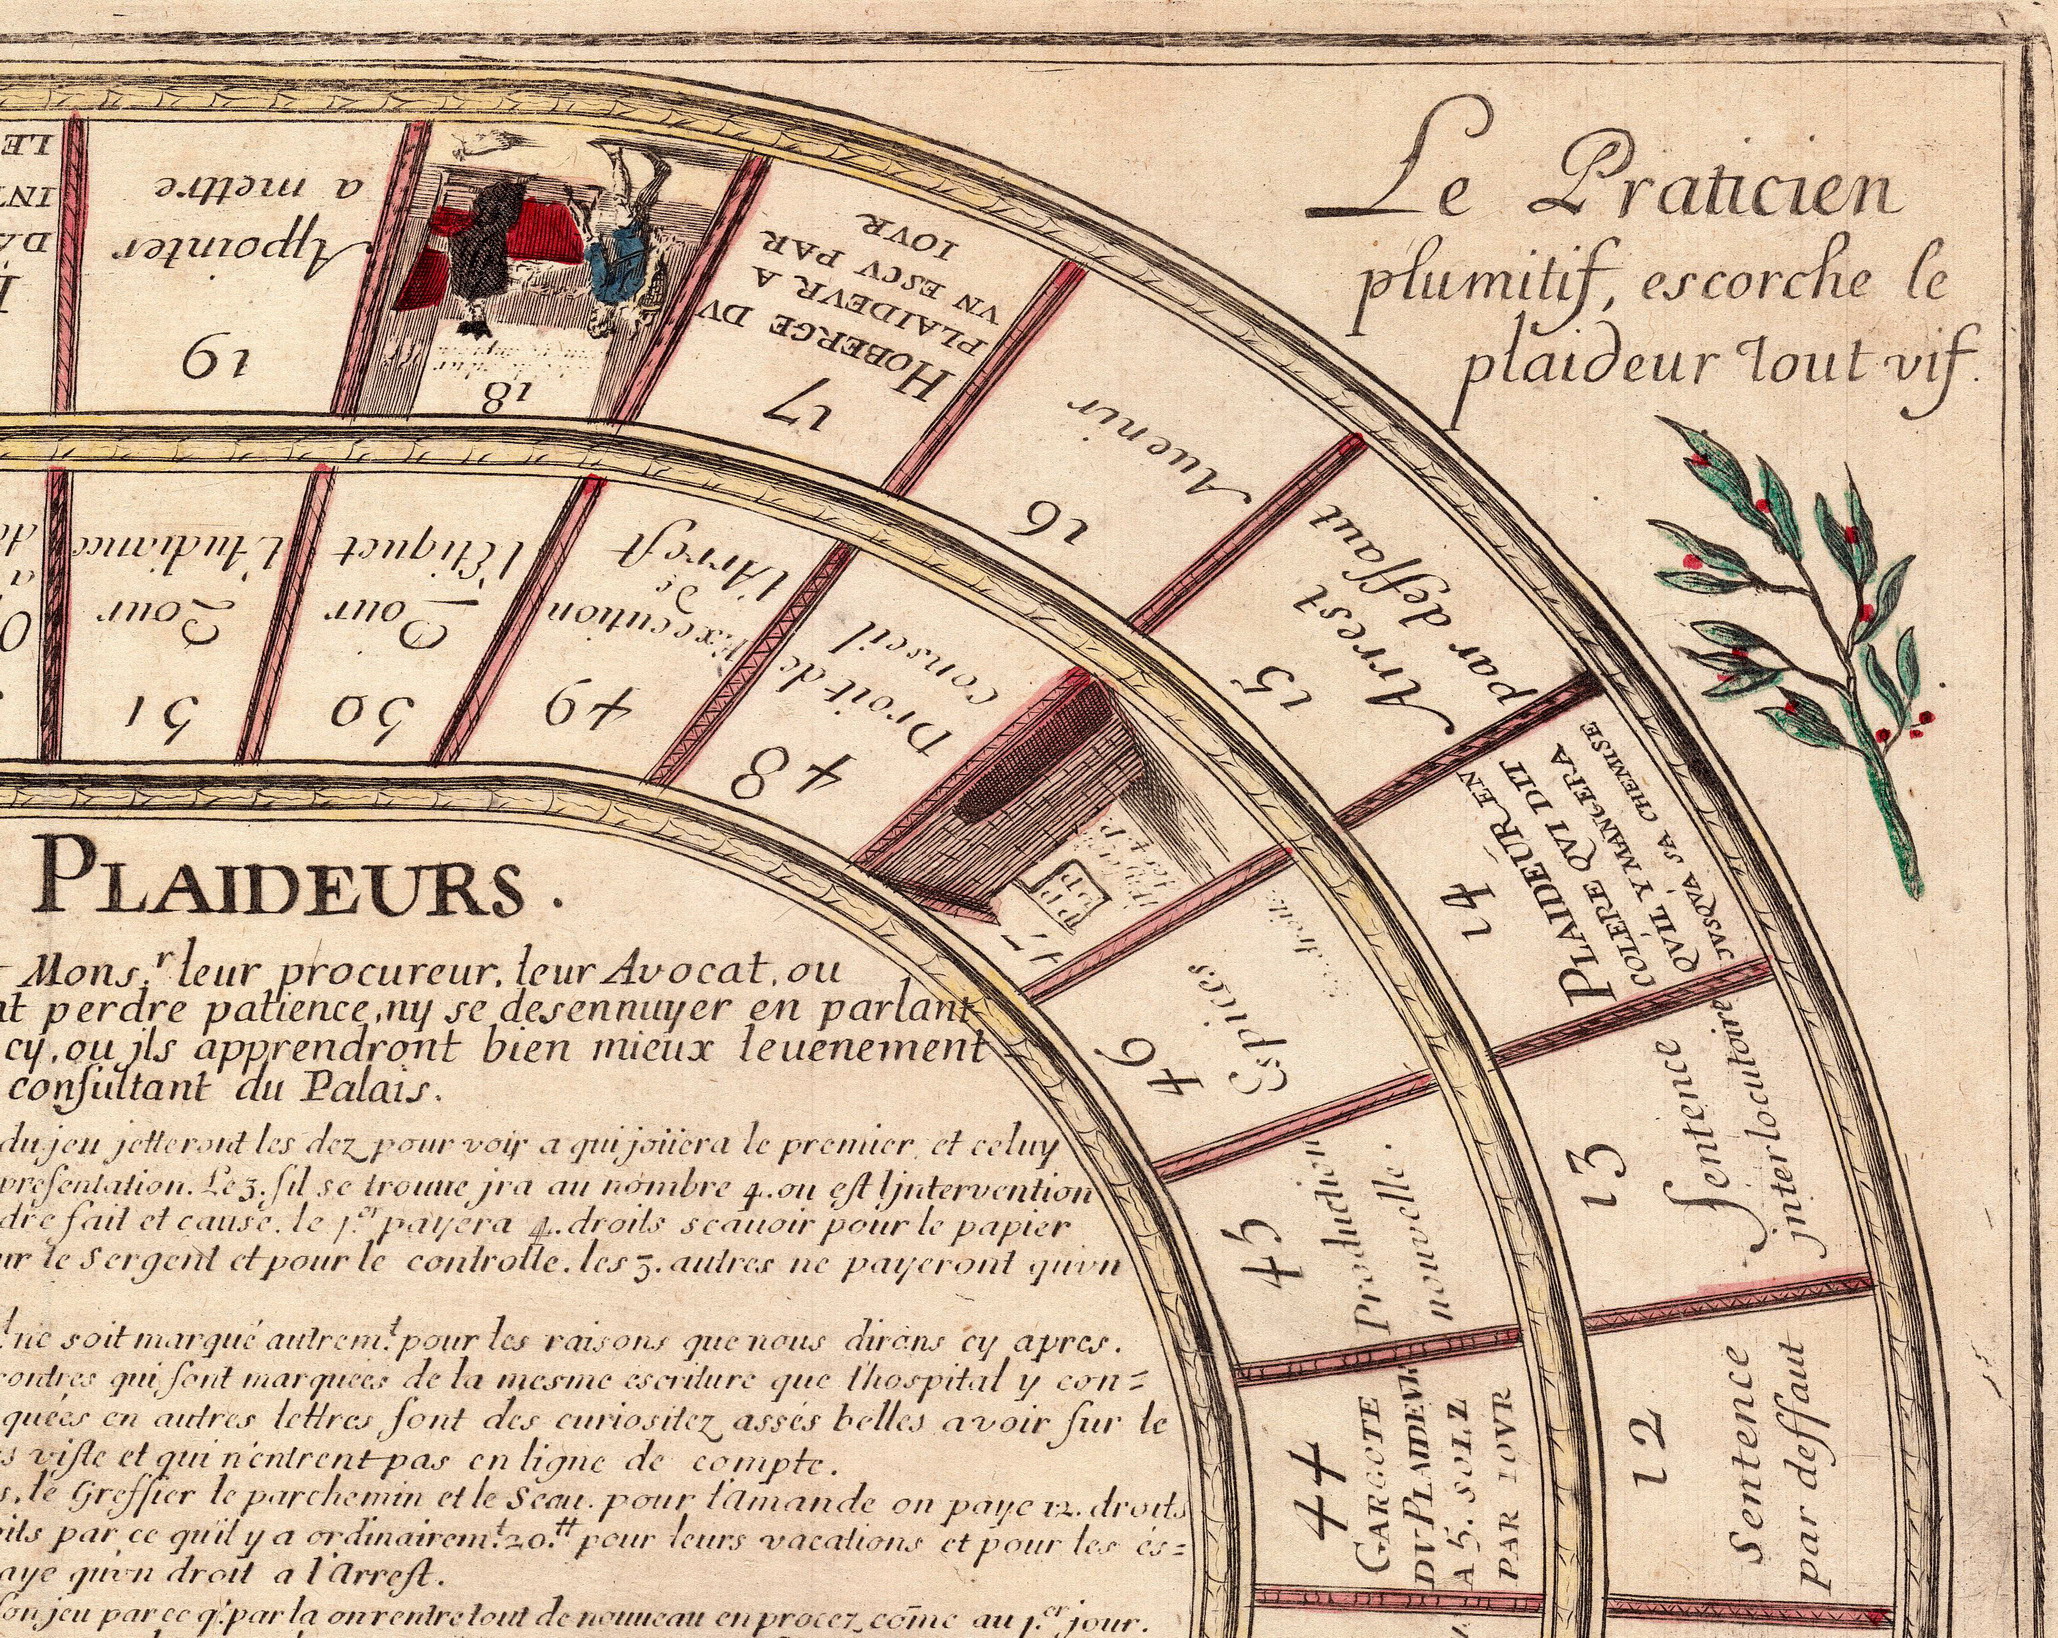 Le Praticien
plumitif, escorche le
plaideur tout vif.
12
Sentence
par deffaut
13
Sentence
jnterlocutoire
14
PLAIDEUR EN
COLERE QVI DIT
QVIL Y MANGERA
JVSQVA SA CHEMISE
15
Arrest
par deffaut
16
Auenir
17
HOBERGE DV
PLAIDEVR A
VN ESCV PAR
IOVR
18
19
Appointer
a mettre
LE
44
GARGOTE
DV PLAIDEVR
A 5. SOLZ
PAR IOVR
45
Production
nouvelle.
46
Espices
47
48
Droit de
conseil
49
Execution
de
l'Arrest
50
Pour
l'Etiquet
51
Pour
l'Audiance
PLAIDEURS.
Mons.r leur procureur, leur Avocat, ou
nt perdre patience, ny se desennuyer en parlant
cy, ou jls apprendront bien mieux leuenement
consultant du Palais.
du jeu jetteront les dez pour voir a qui joüera le premier, et celuy
presentation. Le 3. sil se trouue jra au nombre 4. ou est ljntervention
dre fait et cause. le 1.er payera 4. droits scauoir pour le papier
ur le Sergent et pour le controlle. les 3. autres ne payeront quvn
ne soit marqué autrem.t pour les raisons que nous dirons cy apres.
contres qui sont marquées de la mesme escriture que l'hospital y con=
quées en autres lettres sont des curiositez assés belles a voir sur le
s viste et qui n'entrent pas en ligne de compte.
s, le Greffier le parchemin et le Seau. pour l'amande on paye 12. droits
oits par ce quil y a ordinairem.t 20.tt pour leurs vacations et pour les és=
aye quvn droit a l'Arrest.
son jeu par ce q. par la on rentre tout de nouueau en procez, cõme au 1.er jour.